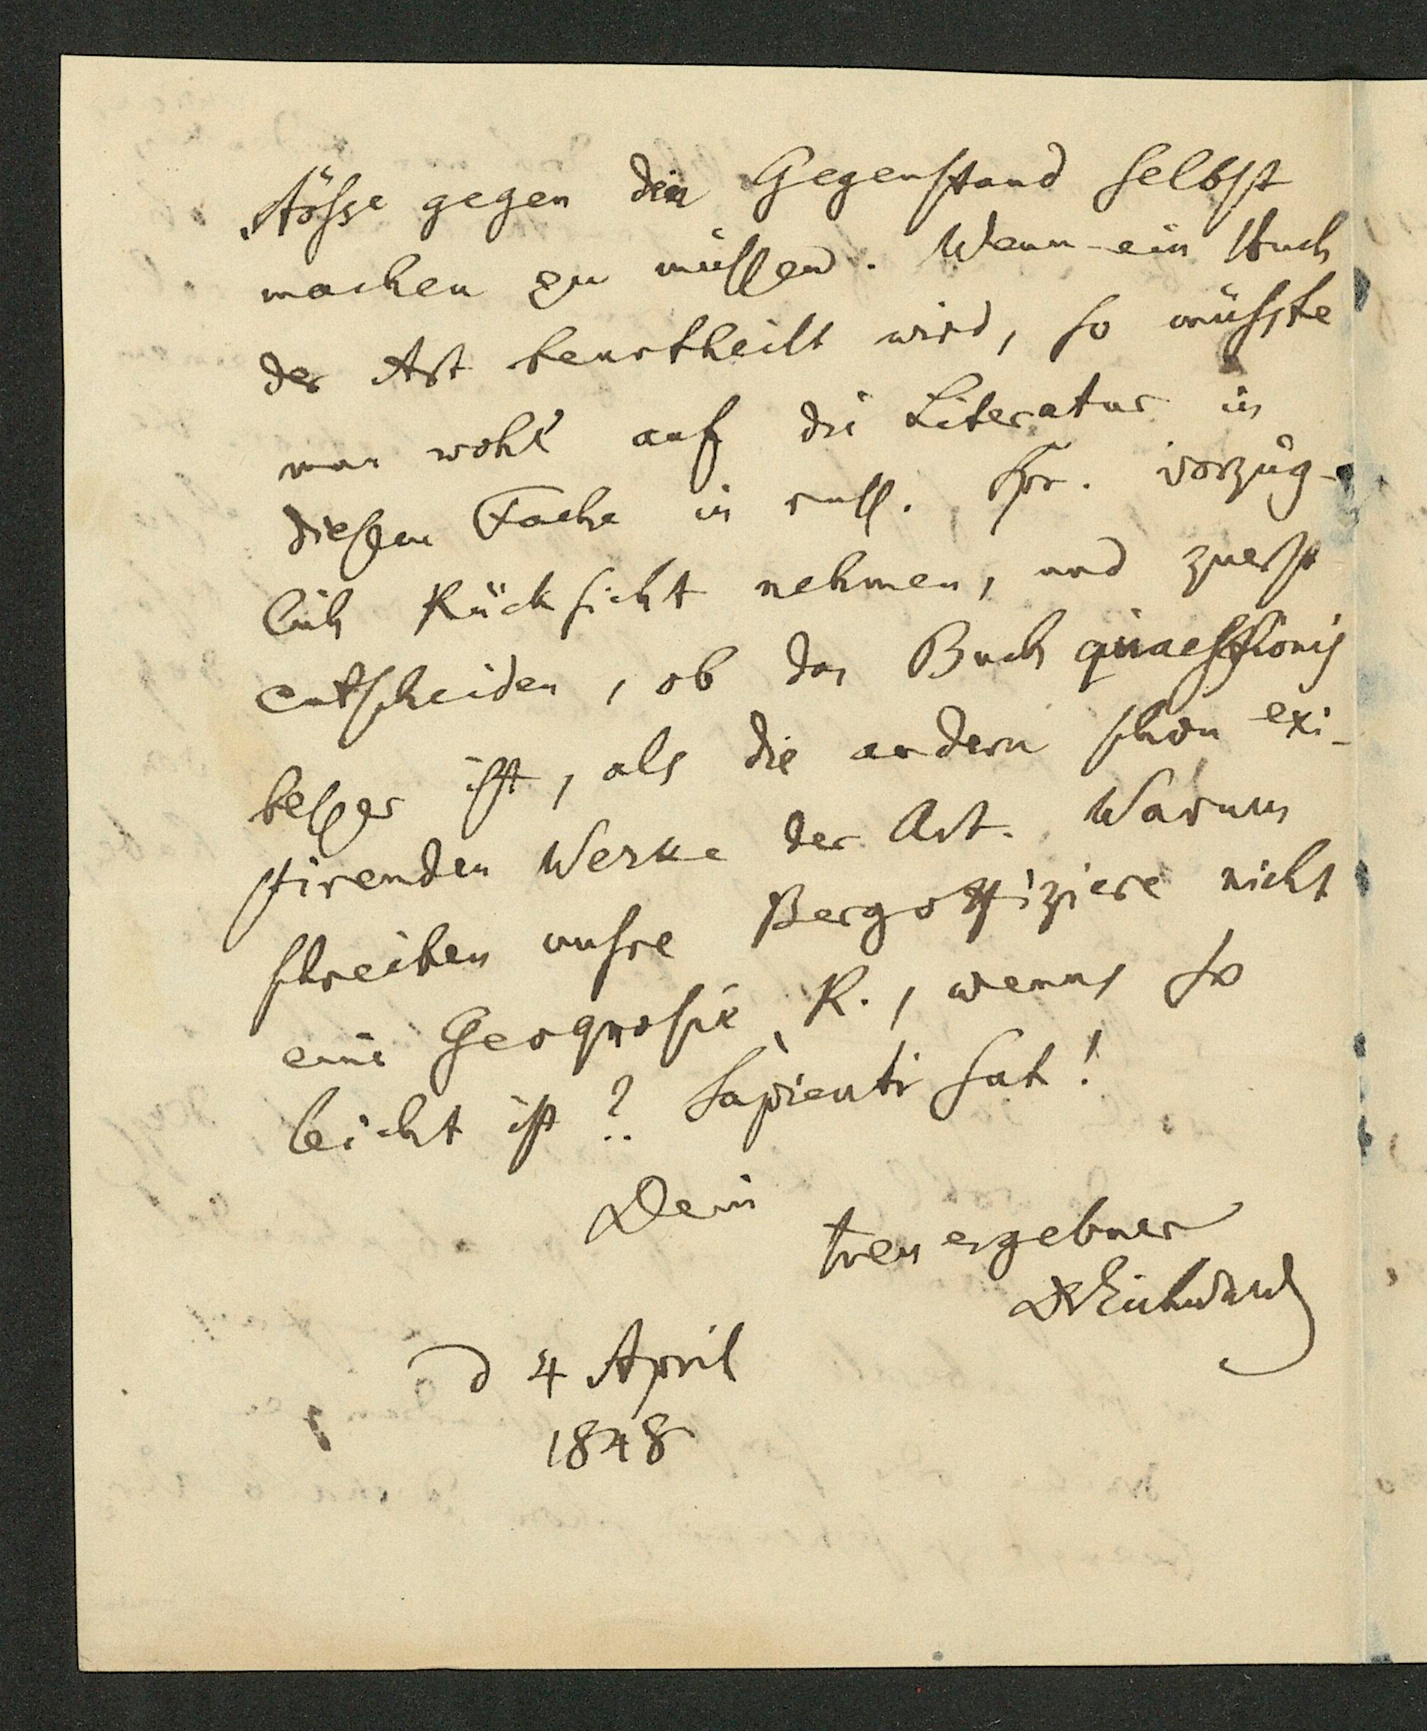 stösse gegen den Gegenstand selbst
machen zu müssen. Wenn ein Buch
der Art beurtheilt wird, so müsste
man wohl auf die Literatur in
diesem Fache in russ. Spr. vorzüg-
lich Rücksicht nehmen, und zuerst
entscheiden, ob das Buch quaestionis
besser ist, als die andern schon exi-
stirenden Werke der Art. Warum
schreiben unsre Bergoffiziere nicht
eine Geognosie R., wenns so
leicht ist? Sapienti sat!
Dein
treu ergebner
DrEichwald
d 4 April
1848